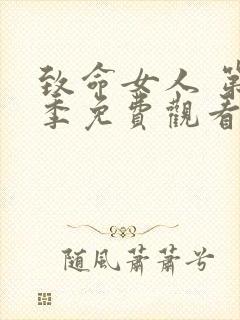 致命女人 第
季免費觀看
隨風蕭蕭兮